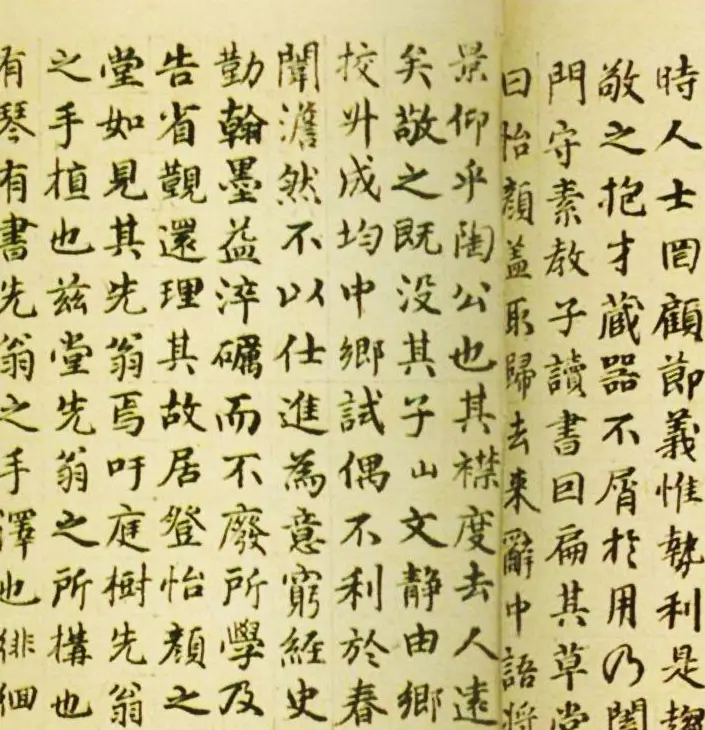 時人士罔顧節義惟執利是趨
敬之抱才蔵器不屑於用乃闔
門守素教子讀書回扁其草堂
曰怡顔盖取歸去来辭中語将
景仰乎陶公也其襟度去人遠
矣敬之既没其子山文静由鄉
校升成均中鄉試偶不利於春
聞澹然不以仕進為意窮經史
勤翰墨益淬礪而不廢所學及
告省觀還理其故居登怡顔之
堂如見其先翁焉吁庭樹先翁
之手植也兹堂先翁之所搆也
有琴有書先翁之手澤也徘徊